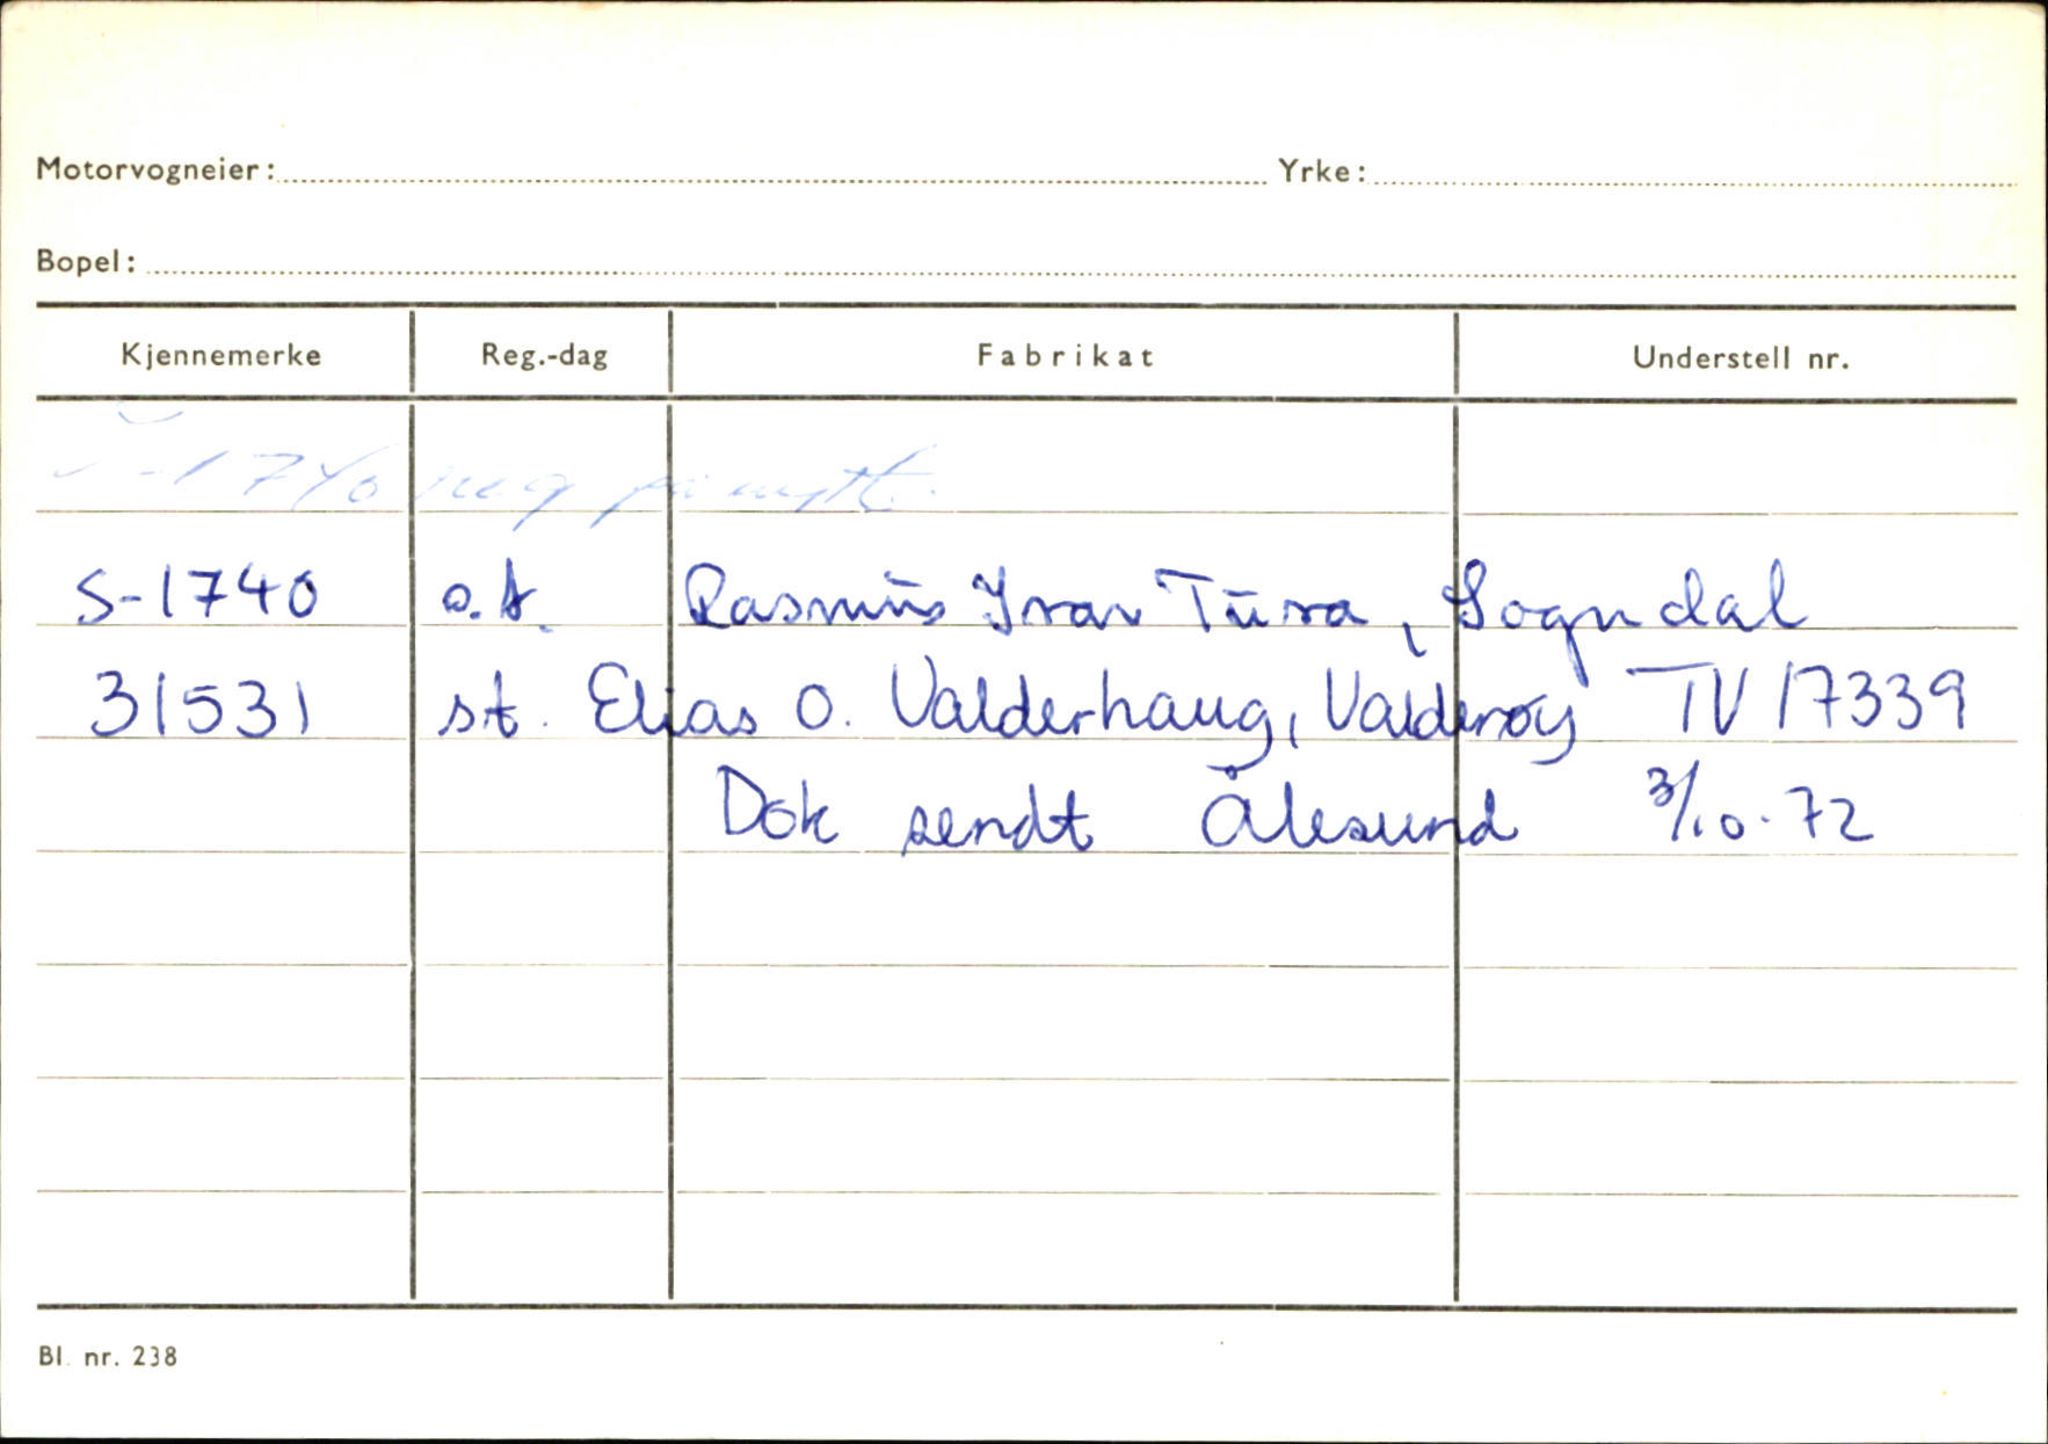 Motorvogneier: Yrke:
Bopel:
Kjennemerke Reg.-dag Fabrikat Understell nr.
S-1740 reg på nytt.
S-1740 o.t. Rasmus Ivar Tura, Sogndal
31531 st. Elias O. Valderhaug, Valderøy TV 17339
Dok sendt Ålesund 3/10-72
Bl. nr. 238